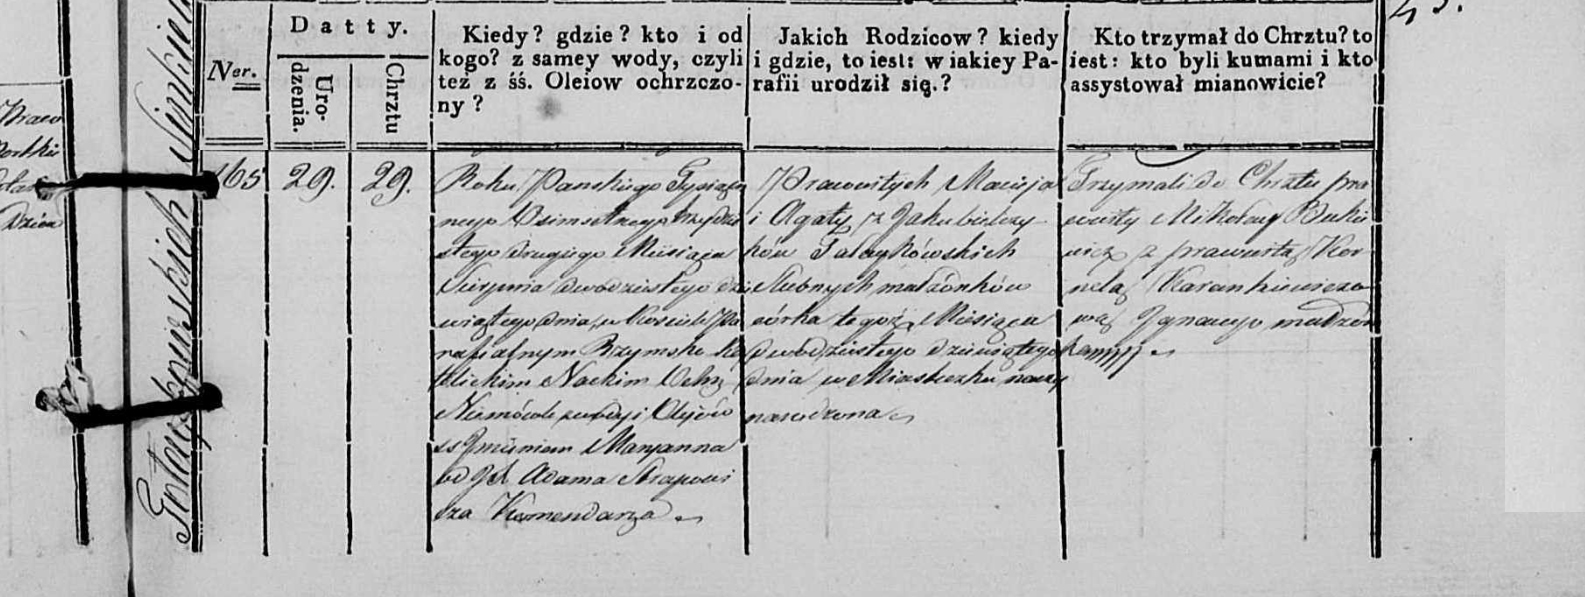 45.
Nrer.
Datty.
Uro-
dzenia.
Chrztu
Kiedy? gdzie? kto i od
kogo? z samey wody, czyli
też z śś. Oleiow ochrzczo-
ny?
Jakich Rodzicow? kiedy
i gdzie, to iest: w iakiey Pa-
rafii urodził się.?
Kto trzymał do Chrztu? to
iest: kto byli kumami i kto
assystował mianowicie?
165
29.
29.
Roku Panskiego Tysiącz
nego Osimsetnego trzydzie
stego drugiego Miesiąca
Sierpnia dwódziestego dzie
wiątego dnia, w Kosciele Pa
rafialnym Rzymsko Ka
tolickim Nackim Ochrz
Niemówle z wody i Olejów
ss Jmieniem Maryanna
od Jx Adama
cza Komendarza
Prawowitych Macieja
i Agaty z Jakubielczy
ków Gołaykówskich
Slubnych małżónków
córka tegoż Miesiąca
dwodziestego dziewiątego
dnia w Miasteczku naszy
narodzona
Trzymali do Chrztu pra
wowity Mikołay Buki
wicz z prawowitą Kor
nelą Karankiewiczo
wą Jgnacego małżón
ką